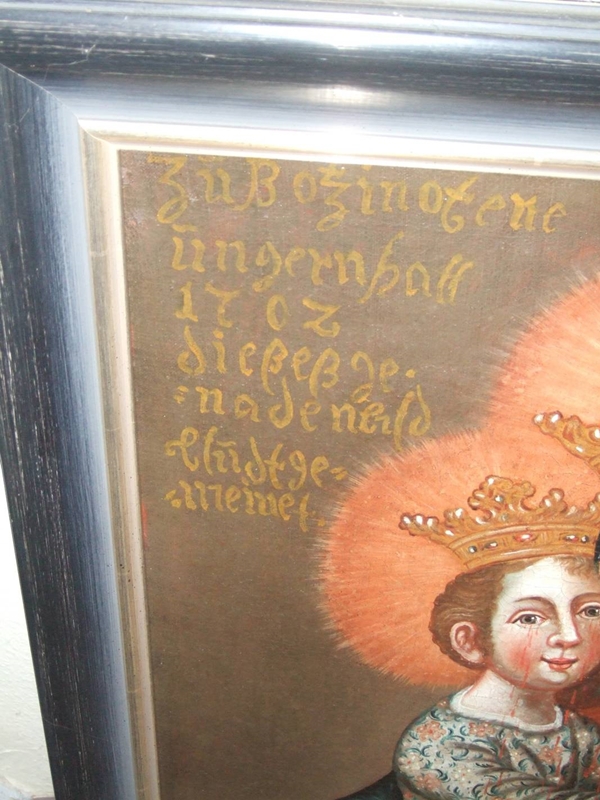 Züß ozin otene
üngern hatt
1702
dießeß ge-
=naden bild
blüdt ge=
=weinet.